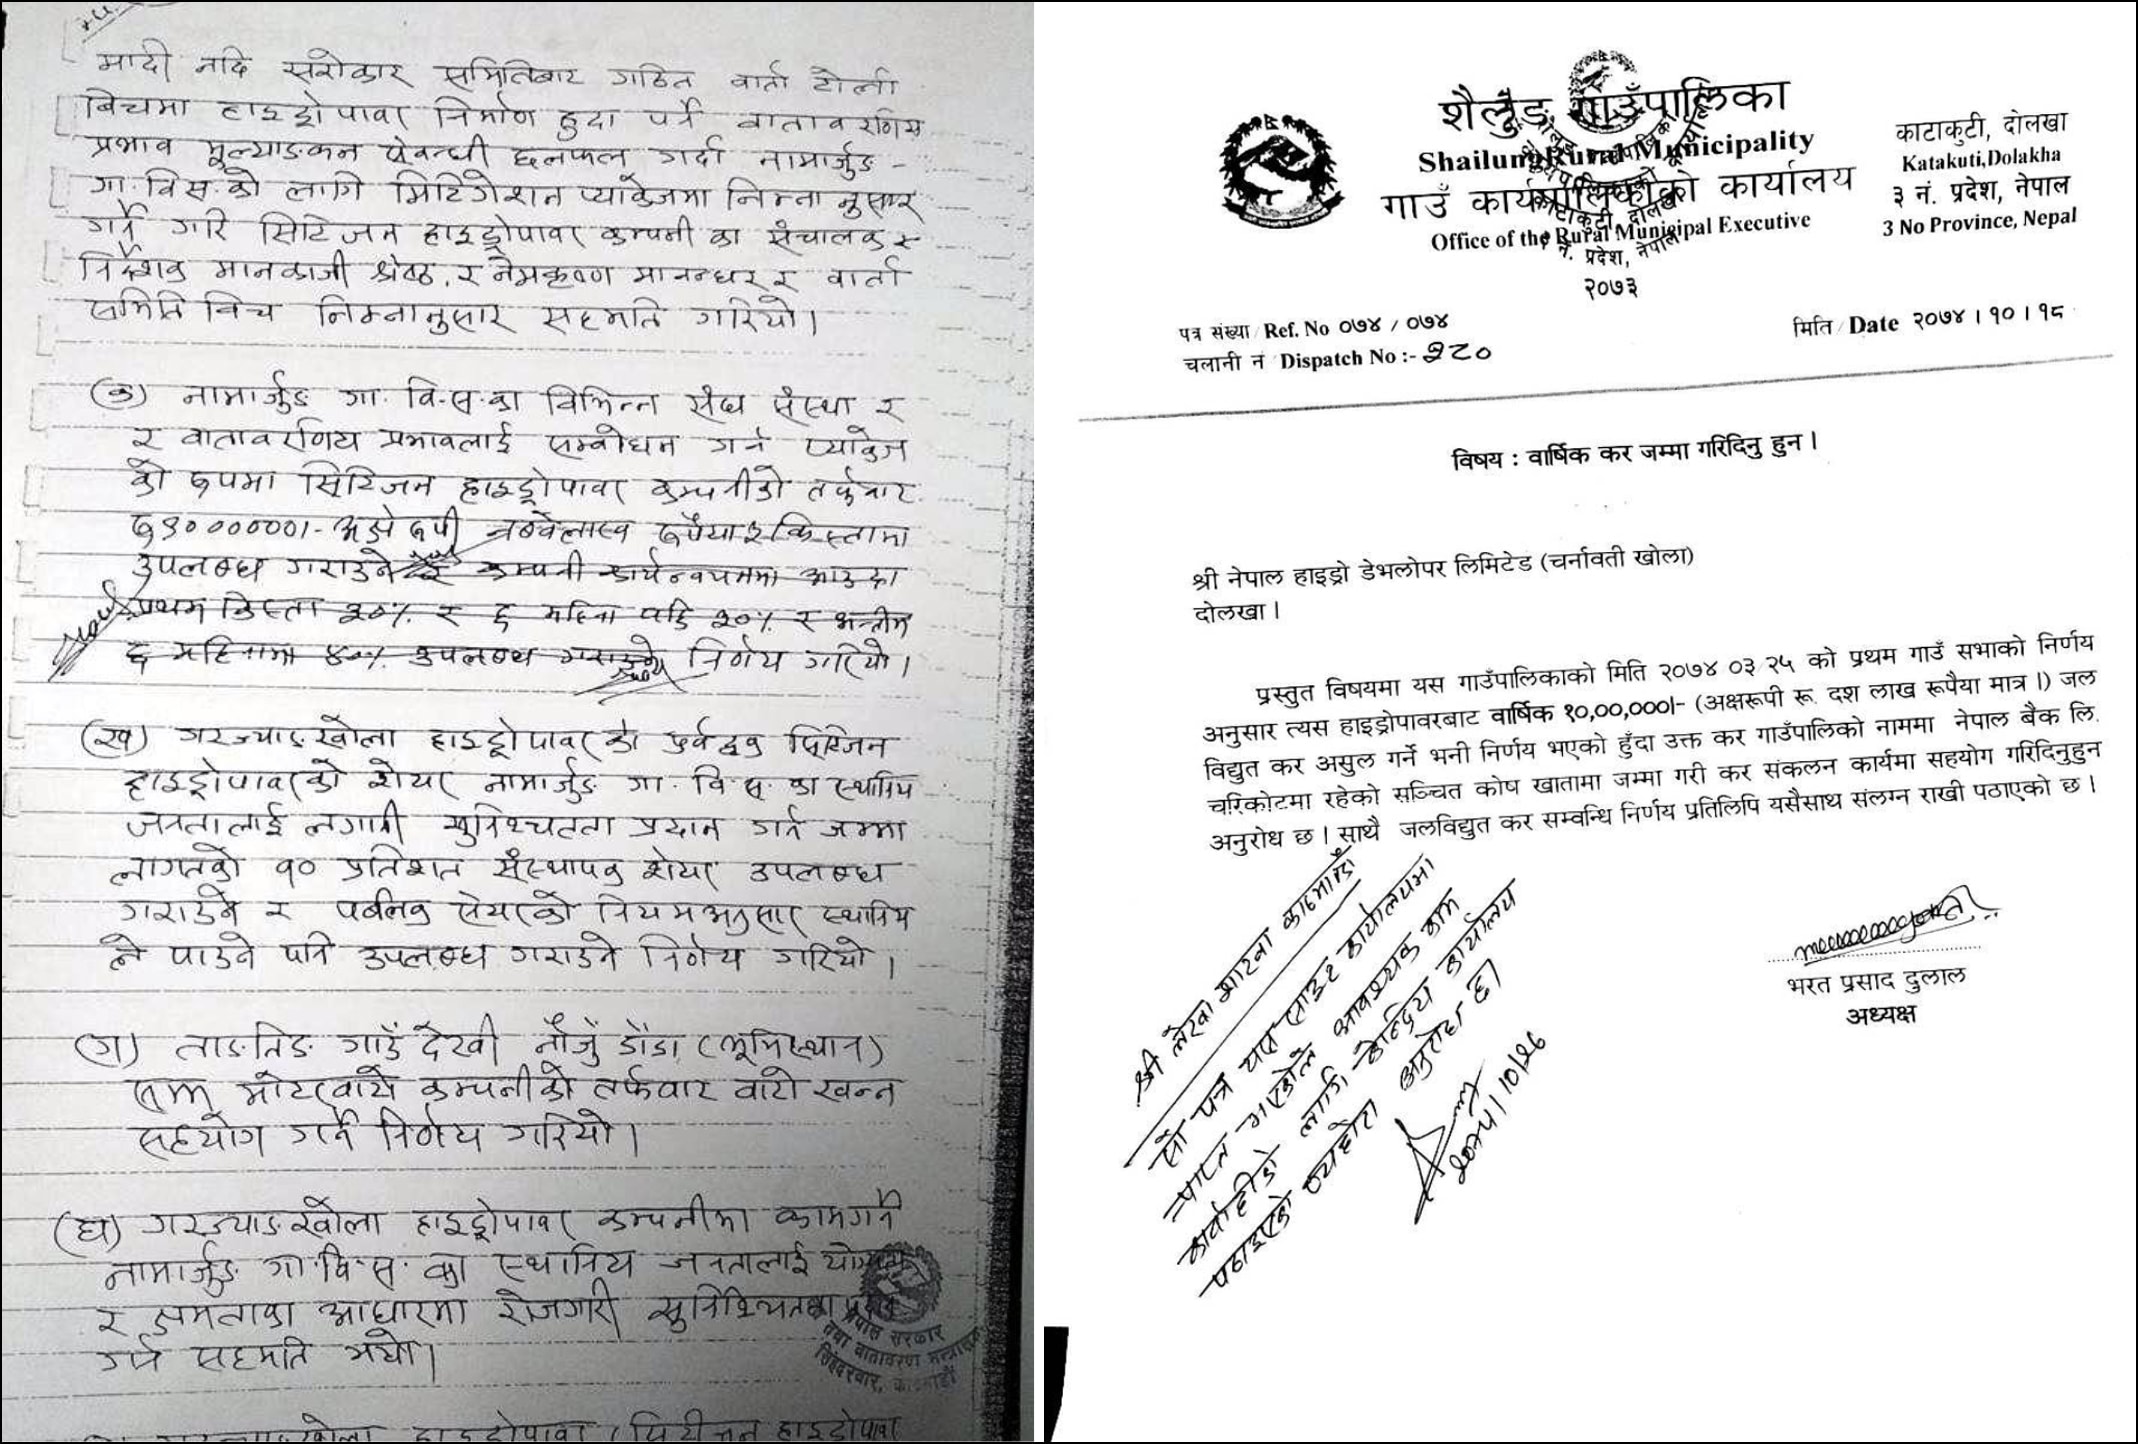 मादी नदि सरोकार समितिबाट गठित वार्ता टोली
बिचमा हाइड्रोपावर निर्माण हुदा पर्ने वातावरणिय
प्रभाव मूल्याङकन सेवन्धी छलफल गर्दा नामार्जुङ -
गा.विस.को लागि मिटिगेशन प्याकेजमा निम्नानुसार
गर्ने गरि सिटिजन हाइड्रोपावर कम्पनी का संचालक र
निर्देशक मानकाजी श्रेष्ठ, र प्रेमकृष्ण मानन्धर र वार्ता
समिति बिच निम्नानुसार सहमति गरियो।
(क) नामार्जुङ गा.वि.स.का विभिन्न संघ संस्था र
र वातावरणिय प्रभावलाई सम्बोधन गर्न प्याकेज
को रुपमा सिटिजन हाइड्रोपावर कम्पनीको तर्फबाट
रु९०००००००।- अक्षे रुपी नब्बेलाख रुपैया किस्तामा
उपलब्ध गराउने कम्पनी कार्यन्वयनमा आउदा
प्रथम किस्ता ३०% र ६ महिना पछि ३०% र अन्तीम
६ महिनामा ४०% उपलब्ध गराउने निर्णय गरियो।
(ख) गरज्याङखोला हाइड्रोपावर को पुर्वद्धक सिटिजन
हाइड्रोपावरको शेयर नामार्जुङ गा.वि.स.का स्थानिय
जनतालाई लगानी सुनिश्चतता प्रदान गर्न जम्मा
लागतको १० प्रतिशत संस्थापक शेयर उपलब्ध
गराउने र पब्लिक सेयरको नियमअनुसार स्थानिय
ले पाउने पनि उपलब्ध गराउने निर्णय गरियो।
(ग) ताङतिङ गाउँ देखी नौजुँ डाँडा (भूमिस्थान)
सम्म मोटरबाटो कम्पनीको तर्फबाट बाटो खन्न
सहयोग गर्ने निर्णय गरियो।
(घ) गरज्याङखोला हाइड्रोपावर कम्पनीमा कामगर्न
नामार्जुङ गा.वि.स. का स्थानिय जनतालाई योग्यता
र क्षमताका आधारमा रोजगारी सुनिश्चितता प्रदान
गर्न सहमति भयो।
नेपाल सरकार
तथा वातावरण मन्त्रालय
सिंहदरबार, काठमाडौं
गरज्याङखोला हाइड्रोपावर सिटीजन हाइड्रोपावर
शैलुङ गाउँपालिका
Shailung Rural Municipality
गाउँ कार्यपालिकाको कार्यालय
Office of the Rural Municipal Executive
काटाकुटी, दोलखा
३ नं. प्रदेश, नेपाल
२०७३
काटाकुटी, दोलखा
Katakuti,Dolakha
३ नं. प्रदेश, नेपाल
3 No Province, Nepal
पत्र संख्या/Ref. No ०७४/०७५
चलानी नं Dispatch No :- ३८०
मिति/Date २०७४।१०।१८
विषय : वार्षिक कर जम्मा गरिदिनु हुन।
श्री नेपाल हाइड्रो डेभलोपर लिमिटेड (चर्नावती खोला)
दोलखा।
प्रस्तुत विषयमा यस गाउँपालिकाको मिति २०७४ ०३ २५ को प्रथम गाउँ सभाको निर्णय
अनुसार त्यस हाइड्रोपावरबाट वार्षिक १०,००,०००।- (अक्षरूपी रू. दश लाख रूपैया मात्र।) जल
विद्युत कर असुल गर्ने भनी निर्णय भएको हुँदा उक्त कर गाउँपालिको नाममा नेपाल बैंक लि.
चरिकोटमा रहेको सञ्चित कोष खातामा जम्मा गरी कर संकलन कार्यमा सहयोग गरिदिनुहुन
अनुरोध छ। साथै जलविद्युत कर सम्वन्धि निर्णय प्रतिलिपि यसैसाथ संलग्न राखी पठाएको छ।
भरत प्रसाद दुलाल
अध्यक्ष
श्री लेखा शाखा काठमाडौं
यो पत्र यस साइट कार्यालयमा
प्राप्त भएकोले आवश्यक काम
कार्वाहीको लागि केन्द्रिय कार्यालय
पठाइएको व्यहोरा अनुरोध छ।